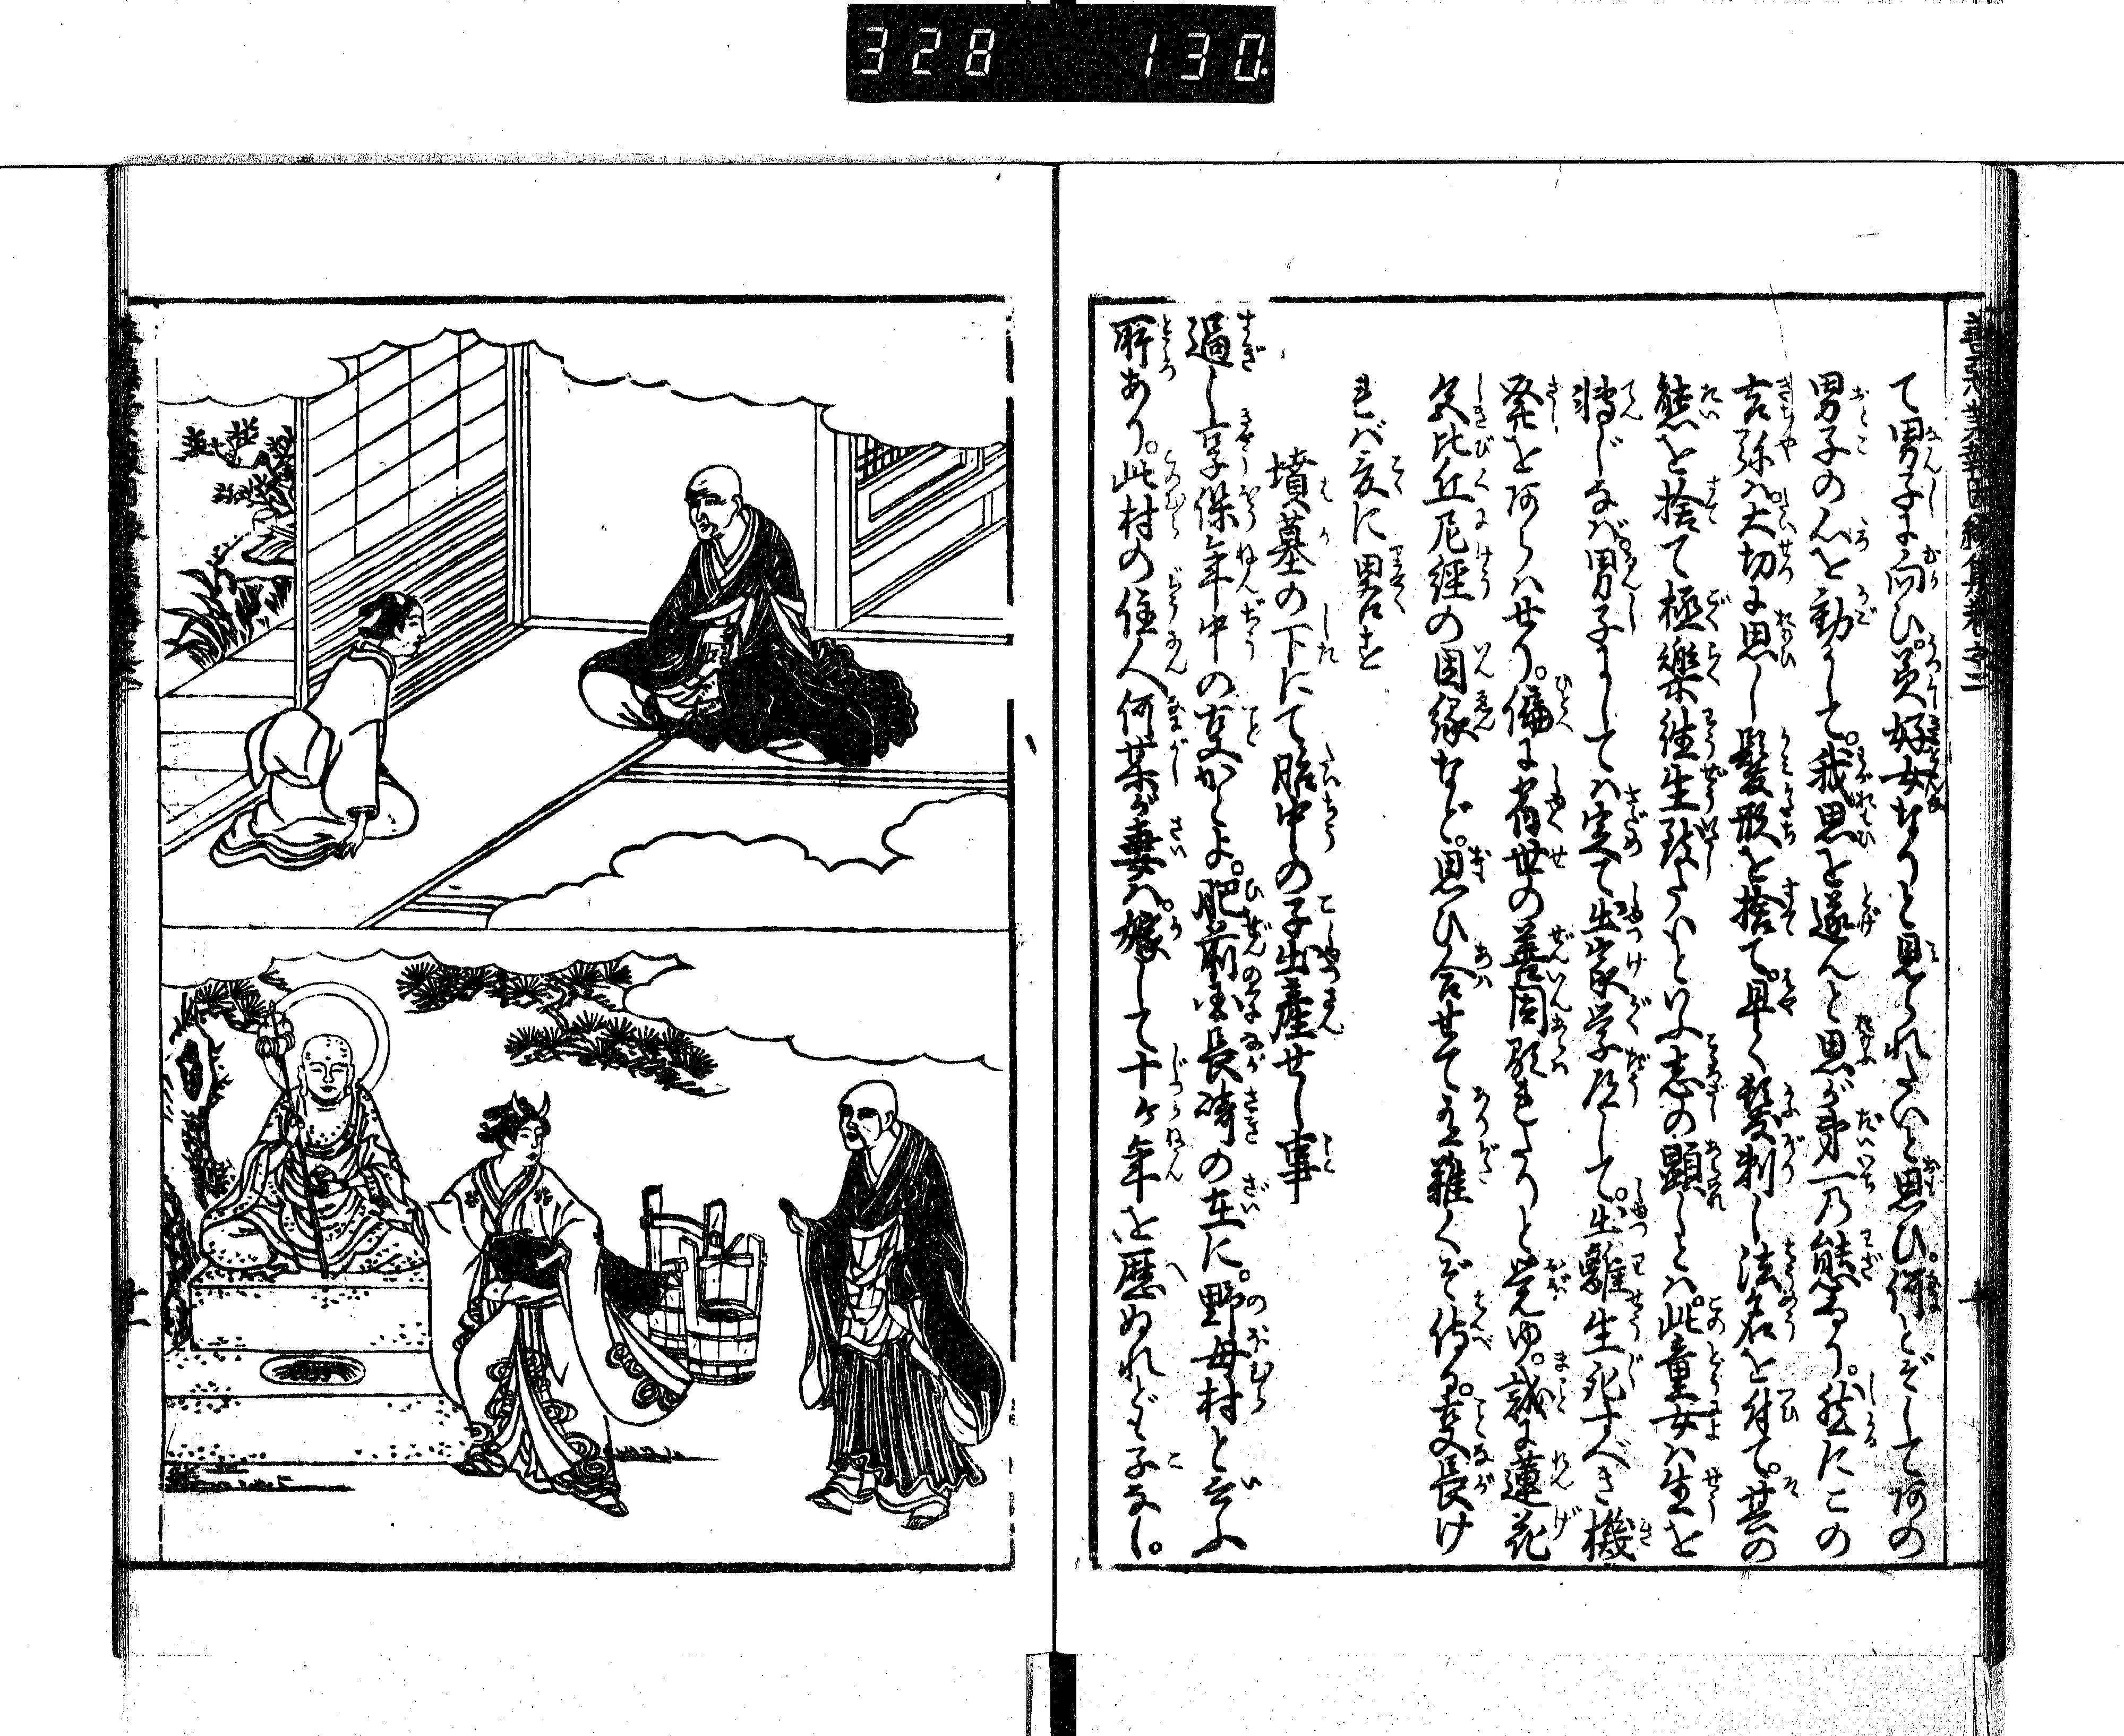 328 130
て男子に向ひ。美好女なりと見られたいと思ひ。何とぞしてあの
男子の心を動かして。我思を遂んと思が第一乃態なり。然にこの
吉弥ハ大切に思し髪形を捨て。早く髪剃し法名を付て。其の
態を捨て極楽往生致たいといふ志の顕しとハ。此童女ハ生を
転じなバ。男子にしてハ定て出家学道して。出離生死すべき機
発をあらハせり。偏に宿世の善因顕れたりと覚ゆ。誠に蓮花
色比丘尼経の因縁など。思ひ合せて有難くぞ侍る。事長け
れバ爰に略す
墳墓の下にて胎中の子出産せし事
過し享保年中の事かとよ。肥前国長崎の在に。野母村と云ふ
所あり。此村の住人何某が妻ハ。嫁して十ケ年を歴ぬれども子なし。